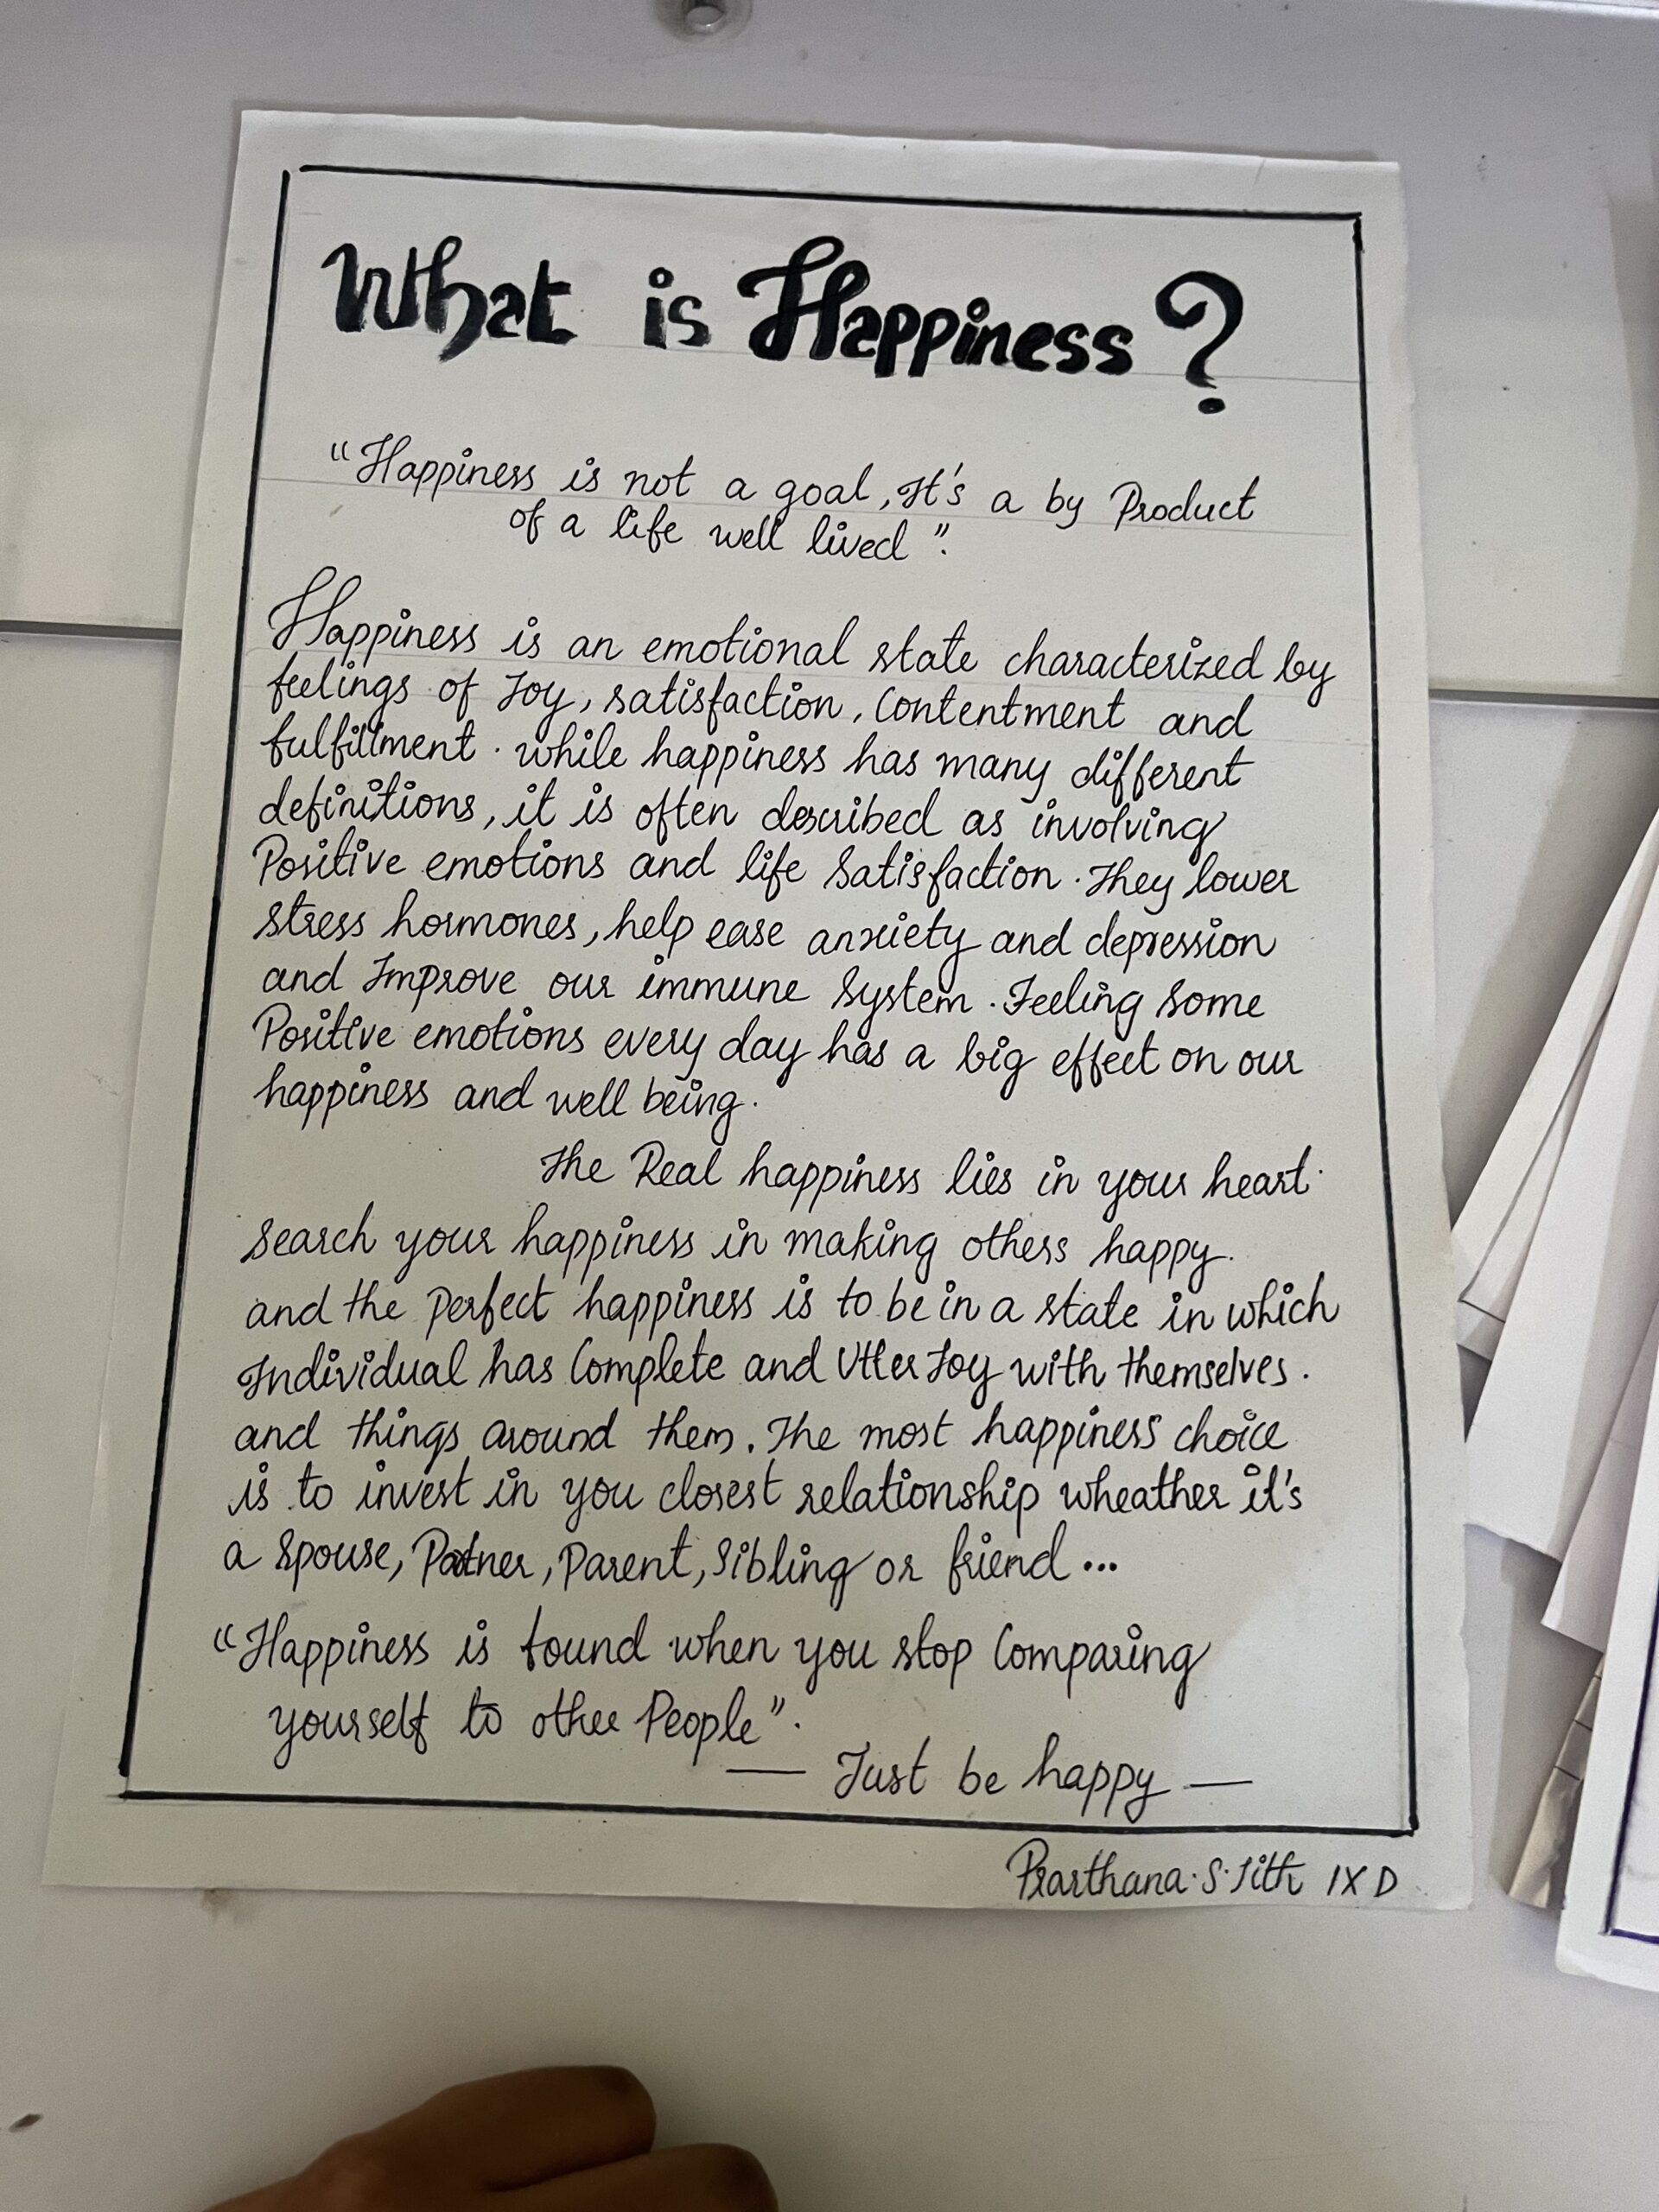 What is Happiness?
"Happiness is not a goal, It's a by Product
of a life well lived".
Happiness is an emotional state characterized by
feelings of Joy, satisfaction, Contentment and
fulfillment. while happiness has many different
definitions, it is often described as involving
Positive emotions and life Satisfaction. They lower
stress hormones, help ease anxiety and depression
and Improve our immune System. Feeling Some
Positive emotions every day has a big effect on our
happiness and well being.
The Real happiness lies in your heart.
Search your happiness in making others happy.
and the Perfect happiness is to be in a state in which
Individual has Complete and Utter Joy with themselves.
and things around them. The most happiness choice
is to invest in you closest relationship wheather it's
a Spouse, Patner, Parent, Sibling or friend...
"Happiness is found when you stop Comparing
yourself to other People".
— Just be happy —
Prarthana. S. Jith IX D